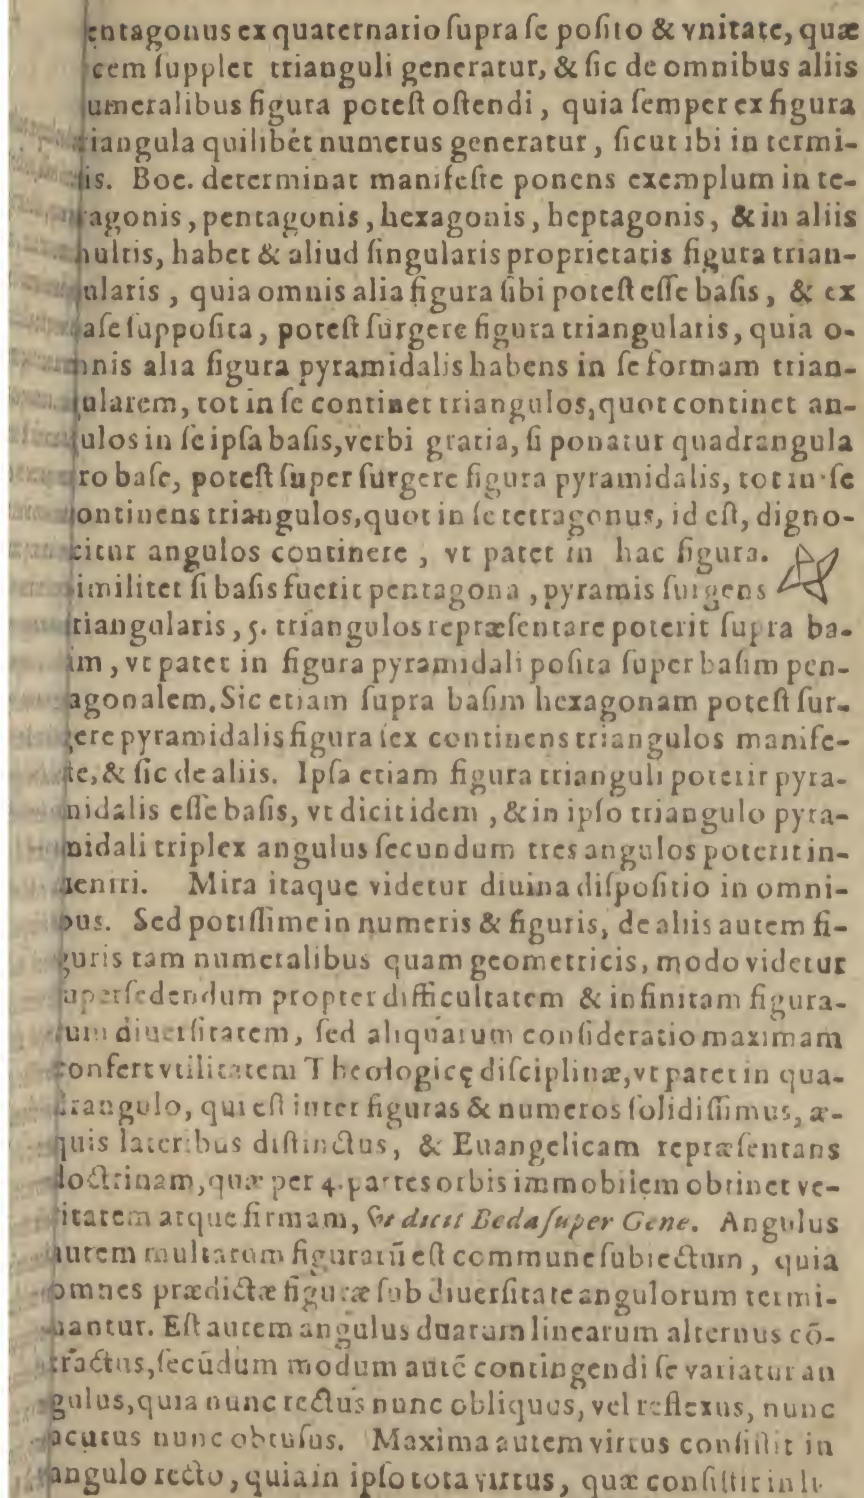 entagonus ex quaternario ſupra ſe poſito & vnitate, quæ
cem ſupplet trianguli generatur, & ſic de omnibus aliis
umeralibus figura poteſt oſtendi, quia ſemper ex figura
riangula quilibet numerus generatur, ſicut ibi in termi-
is. Boe. determinat manifeſte ponens exemplum in te-
ragonis, pentagonis, hexagonis, heptagonis, & in aliis
multis, habet & aliud ſingularis proprietatis figura trian-
gularis, quia omnis alia figura ſibi poteſt eſſe baſis, & ex
baſe ſuppoſita, poteſt ſurgere figura triangularis, quia o-
mnis alia figura pyramidalis habens in ſe formam trian-
gularem, tot in ſe continet triangulos, quot continet an-
gulos in ſe ipſa baſis, verbi gratia, ſi ponatur quadrangula
ro baſe, poteſt ſuper ſurgere figura pyramidalis, tot in ſe
ontinens triangulos, quot in ſe tetragonus, id eſt, digno-
citur angulos continere, vt patet in hac figura.
ſimiliter ſi baſis fuerit pentagona, pyramis ſurgens
triangularis, 5. triangulos repræſentare poterit ſupra ba-
ſim, vt patet in figura pyramidali poſita ſuper baſim pen-
agonalem. Sic etiam ſupra baſim hexagonam poteſt ſur-
gere pyramidalis figura ſex continens triangulos manife-
ſte, & ſic de aliis. Ipſa etiam figura trianguli poterit pyra-
midalis eſſe baſis, vt dicit idem, & in ipſo triangulo pyra-
midali triplex angulus ſecundum tres angulos poterit in-
ueniri. Mira itaque videtur diuina diſpoſitio in omni-
bus. Sed potiſſime in numeris & figuris, de aliis autem fi-
guris tam numeralibus quam geometricis, modo videtur
ſuperſedendum propter difficultatem & infinitam figura-
rum diuerſitatem, ſed aliquarum conſideratio maximam
confert vtilitatem Theologicę diſciplinæ, vt patet in qua-
drangulo, qui eſt inter figuras & numeros ſolidiſſimus, æ-
quis lateribus diſtinctus, & Euangelicam repræſentans
doctrinam, quæ per 4. partes orbis immobilem obtinet ve-
ritatem atque firmam, vt dicit Beda ſuper Gene. Angulus
autem multarum figurarū eſt commune ſubiectum, quia
omnes prædictæ figuræ ſub diuerſitate angulorum termi-
nantur. Eſt autem angulus duarum linearum alternus cō-
tractus, ſecūdum modum autē contingendi ſe variatur an
gulus, quia nunc rectus nunc obliquus, vel reflexus, nunc
acutus nunc obtuſus. Maxima autem virtus conſiſtit in
angulo recto, quia in ipſo tota virtus, quæ conſiſtit in li-